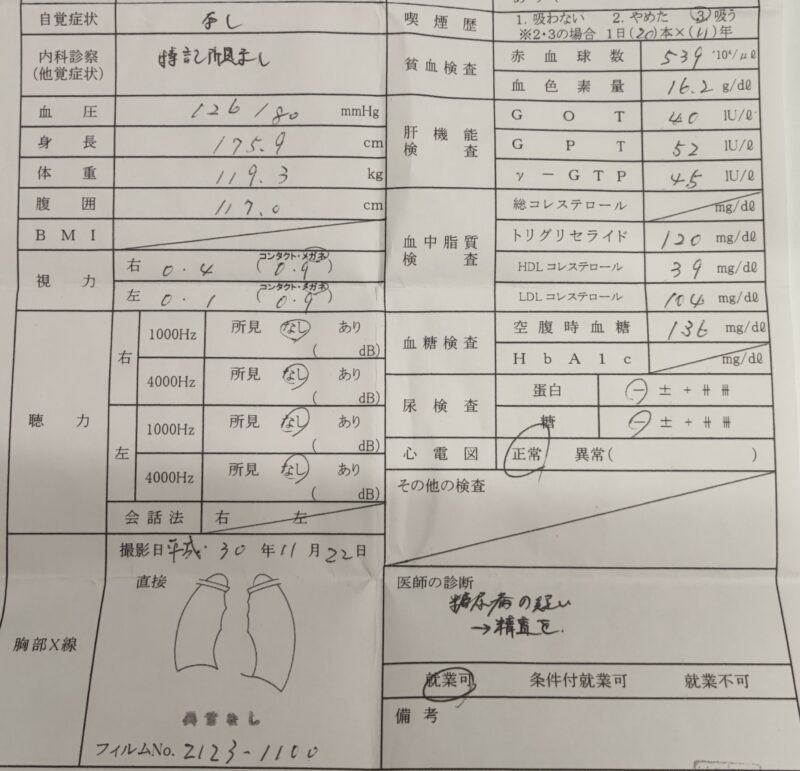 自覚症状 なし
内科診察 特記所見なし
(他覚症状)
血圧 126/80 mmHg
身長 175.9 cm
体重 119.3 kg
腹囲 117.0 cm
BMI
視力 右 0.4 (コンタクト・メガネ 0.9)
左 0.1 (コンタクト・メガネ 0.9)
聴力 右 1000Hz 所見 なし あり
( dB)
4000Hz 所見 なし あり
( dB)
左 1000Hz 所見 なし あり
( dB)
4000Hz 所見 なし あり
( dB)
会話法 右 左
胸部X線
撮影日 平成 30 年 11 月 22 日
直接
異常なし
フィルムNo. 2123-1100
喫煙歴 1. 吸わない 2. やめた 3 吸う
※2・3の場合 1日(20)本×(11)年
貧血検査 赤血球数 539 ・10⁴/μl
血色素量 16.2 g/dl
肝機能検査 GOT 40 IU/l
GPT 52 IU/l
γ-GTP 45 IU/l
血中脂質検査 総コレステロール mg/dl
トリグリセライド 120 mg/dl
HDLコレステロール 39 mg/dl
LDLコレステロール 104 mg/dl
血糖検査 空腹時血糖 136 mg/dl
HbA1c mg/dl
尿検査 蛋白 − ± + ⧺ ⧻
糖 − ± + ⧺ ⧻
心電図 正常 異常( )
その他の検査
医師の診断
糖尿病の疑い
→精査を.
就業可 条件付就業可 就業不可
備考